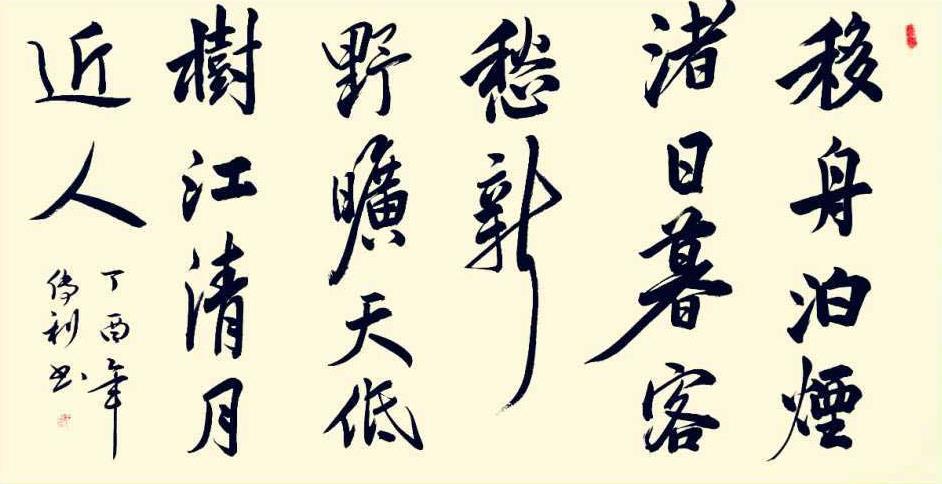 移舟泊煙
渚日暮客
愁新
野曠天低
樹江清月
近人
丁酉年
利书